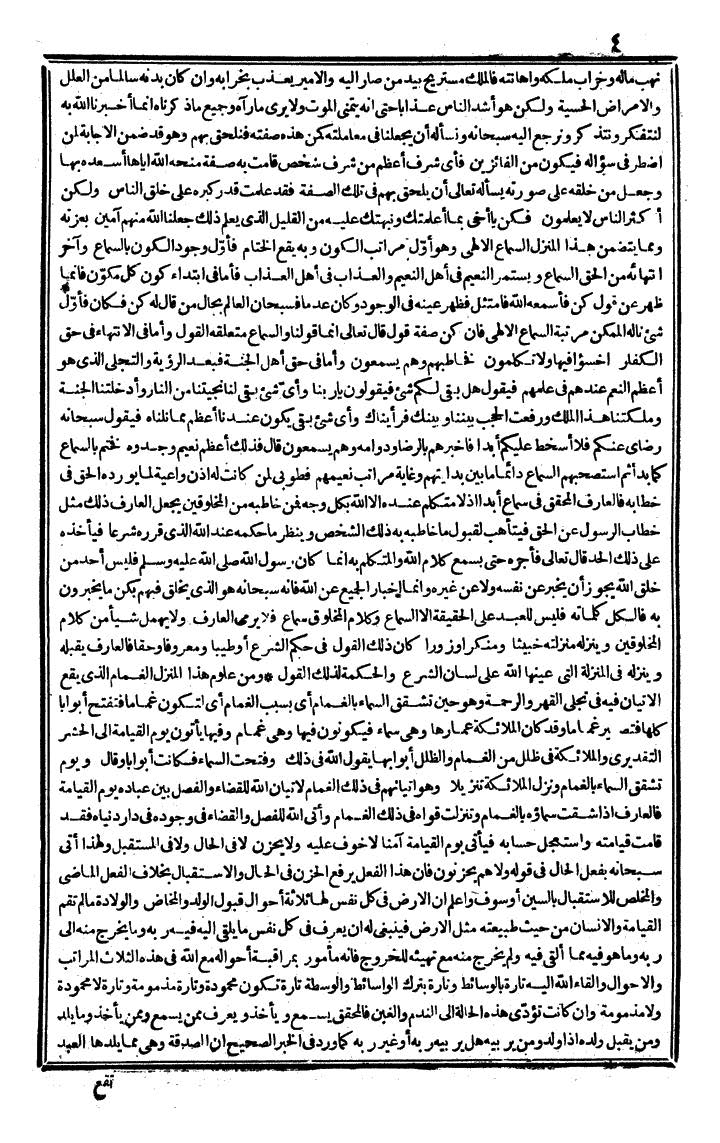 ٤
نهب ماله وخراب ملكه واهانته فالملك مستريح بيد من صار اليه والامير يعذب بخرابه وان كان بدنه سالما من العلل
والامراض الحسية ولكن هو أشد الناس عذابا حتى انه يتمنى الموت ولا يرى مارآه وجميع ماذكرناه انما أخبرنا الله به
لنتفكر ونتذكر ونرجع اليه سبحانه ونسأله أن يجعلنا فى معاملته كن هذه صفته فنلحق بهم وهو قد ضمن الاجابة لمن
اضطر فى سؤاله فيكون من الفائزين فأى شرف أعظم من شرف شخص قامت به صفة منحه الله اياها أسعده بها
وجعل من خلقه على صورته يسأله تعالى أن يلحق بهم فى تلك الصفة فقد علمت قدر كبره على خلق الناس ولكن
أكثر الناس لا يعلمون فكن يا أخى بما أعلمتك ونبهتك عليه من القليل الذى يعلم ذلك جعلنا الله منهم آمين بعزته
ومما يتضمن هذا المنزل السماع الالهى وهو أوّل مراتب الكون وبه يقع الختام فأوّل وجود الكون بالسماع وآخر
انتهائه من الحق السماع ويستمر النعيم فى أهل النعيم والعذاب فى أهل العذاب فأما فى ابتداء كون كل مكوّن فانما
ظهر عن قول كن فأسمعه الله فامتثل فظهر عينه فى الوجود وكان عدما فسبحان العالم بحال من قال له كن فكان فأوّل
شئ ناله الممكن مرتبة السماع الالهى فان كن صفة قول قال تعالى انما قولنا والسماع متعلقه القول وأما فى الانتهاء فى حق
الكفار اخسؤا فيها ولا تكلمون فخاطبهم وهم يسمعون وأما فى حق أهل الجنة فبعد الرؤية والتجلى الذى هو
أعظم النعم عندهم فى علمهم فيقول هل بقى لكم شئ فيقولون يا ربنا وأىّ شئ بقى لنا نجيتنا من النار وأدخلتنا الجنة
وملكتنا هذا الملك ورفعت الحجب بيننا وبينك فرأيناك وأى شئ بقى يكون عندنا أعظم مما نلناه فيقول سبحانه
رضاى عنكم فلا أسخط عليكم أبدا فاخبرهم بالرضا ودوامه وهم يسمعون قال فذلك أعظم نعيم وجدوه فختم بالسماع
كما بدأ ثم استصحبهم السماع دائما ما بين بدايتهم وغاية مراتب نعيمهم فطوبى لمن كانت له اذن واعية لما يورده الحق فى
خطابه فالعارف المحقق فى سماع أبدا اذ لا متكلم عنده الا الله بكل وجه فمن خاطبه من المخلوقين يجعل العارف ذلك مثل
خطاب الرسول عن الحق فيتأهب لقبول ما خاطبه به ذلك الشخص وينظر ما حكمه عند الله الذى قرره شرعا فيأخذه
على ذلك الحد قال تعالى فأجره حتى يسمع كلام الله والمتكلم به انما كان رسول الله صلى الله عليه وسلم فليس أحد من
خلق الله يجوز أن يخبر عن نفسه ولا عن غيره وانما اخبار الجميع عن الله فانه سبحانه هو الذى يخلق فيهم بكن ما يخبرون
به فالكل كلماته فليس للعبد على الحقيقة الا السماع وكلام المخلوق سماع فلا يرمى العارف ولا يهمل شيأ من كلام
المخلوقين وينزله منزلته خبيثا ومنكرا وزورا كان ذلك القول فى حكم الشرع أو طيبا ومعروفا وحقا فالعارف يقبله
وينزله فى المنزلة التى عينها الله على لسان الشرع والحكمة لذلك القول * ومن علوم هذا المنزل الغمام الذى يقع
الاتيان فيه فى تجلى القهر والرحمة وهو حين تشقق السماء بالغمام أى بسبب الغمام أى لتكون غما ما فتفتح أبوابا
كلها فتصير غماما وقد كان الملائكة عمارها وهى سماء فيكونون فيها وهى غمام وفيها يأتون يوم القيامة الى الحشر
التقديرى والملائكة فى ظلل من الغمام والظلل أبوابها يقول الله فى ذلك وفتحت السماء فكانت أبوابا وقال ويوم
تشقق السماء بالغمام ونزل الملائكة تنزيلا وهو اتيانهم فى ذلك الغمام لاتيان الله للقضاء والفصل بين عباده يوم القيامة
فالعارف اذا شقت سماؤه بالغمام وتنزلت قواه فى ذلك الغمام وأتى الله للفصل والقضاء فى وجوده فى دار دنياه فقد
قامت قيامته واستعجل حسابه فيأتى يوم القيامة آمنا لا خوف عليه ولا يحزن لا فى الحال ولا فى المستقبل ولهذا أتى
سبحانه بفعل الحال فى قوله ولا هم يحزنون فان هذا الفعل يرفع الحزن فى الحال والاستقبال بخلاف الفعل الماضى
والمخلص للاستقبال بالسين أو سوف واعلم ان الارض فى كل نفس لها ثلاثة أحوال قبول الولد والمخاض والولادة مالم تقم
القيامة والانسان من حيث طبيعته مثل الارض فينبغى له ان يعرف فى كل نفس ما يلقى اليه فيه ربه وما يخرج منه الى
ربه وما هو فيه مما ألقى فيه ولم يخرج منه مع تهيئه للخروج فانه مأمور بمراقبة أحواله مع الله فى هذه الثلاث المراتب
والاحوال والقاء الله اليه تارة بالوسائط وتارة بترك الواسائط والوسطة تارة تكون محمودة وتارة مذمومة وتارة لا محمودة
ولا مذمومة وان كانت تؤدّى هذه الحالة الى الندم والغبن فالمحقق يسمع ويأخذ ويعرف ممن يسمع وممن يأخذ وما يلد
ومن يقبل ولده اذا ولد ومن يربيه هل يربيه ربه أو غير ربه كما ورد فى الخبر الصحيح ان الصدقة وهى مما يلدها العبد
تقع